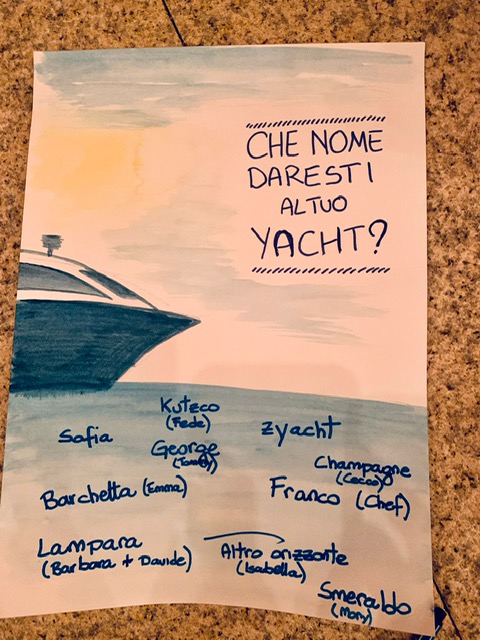 CHE NOME
DARESTI
AL TUO
YACHT?
Kutzco
(Fede)
Sofia
zyacht
George
(Tomty)
Champagne
(Cocco)
Barchetta (Emma)
Franco (Chef)
Lampara
(Barbara + Davide)
Altro orizzonte
(Isabella)
Smeraldo
(Mony)